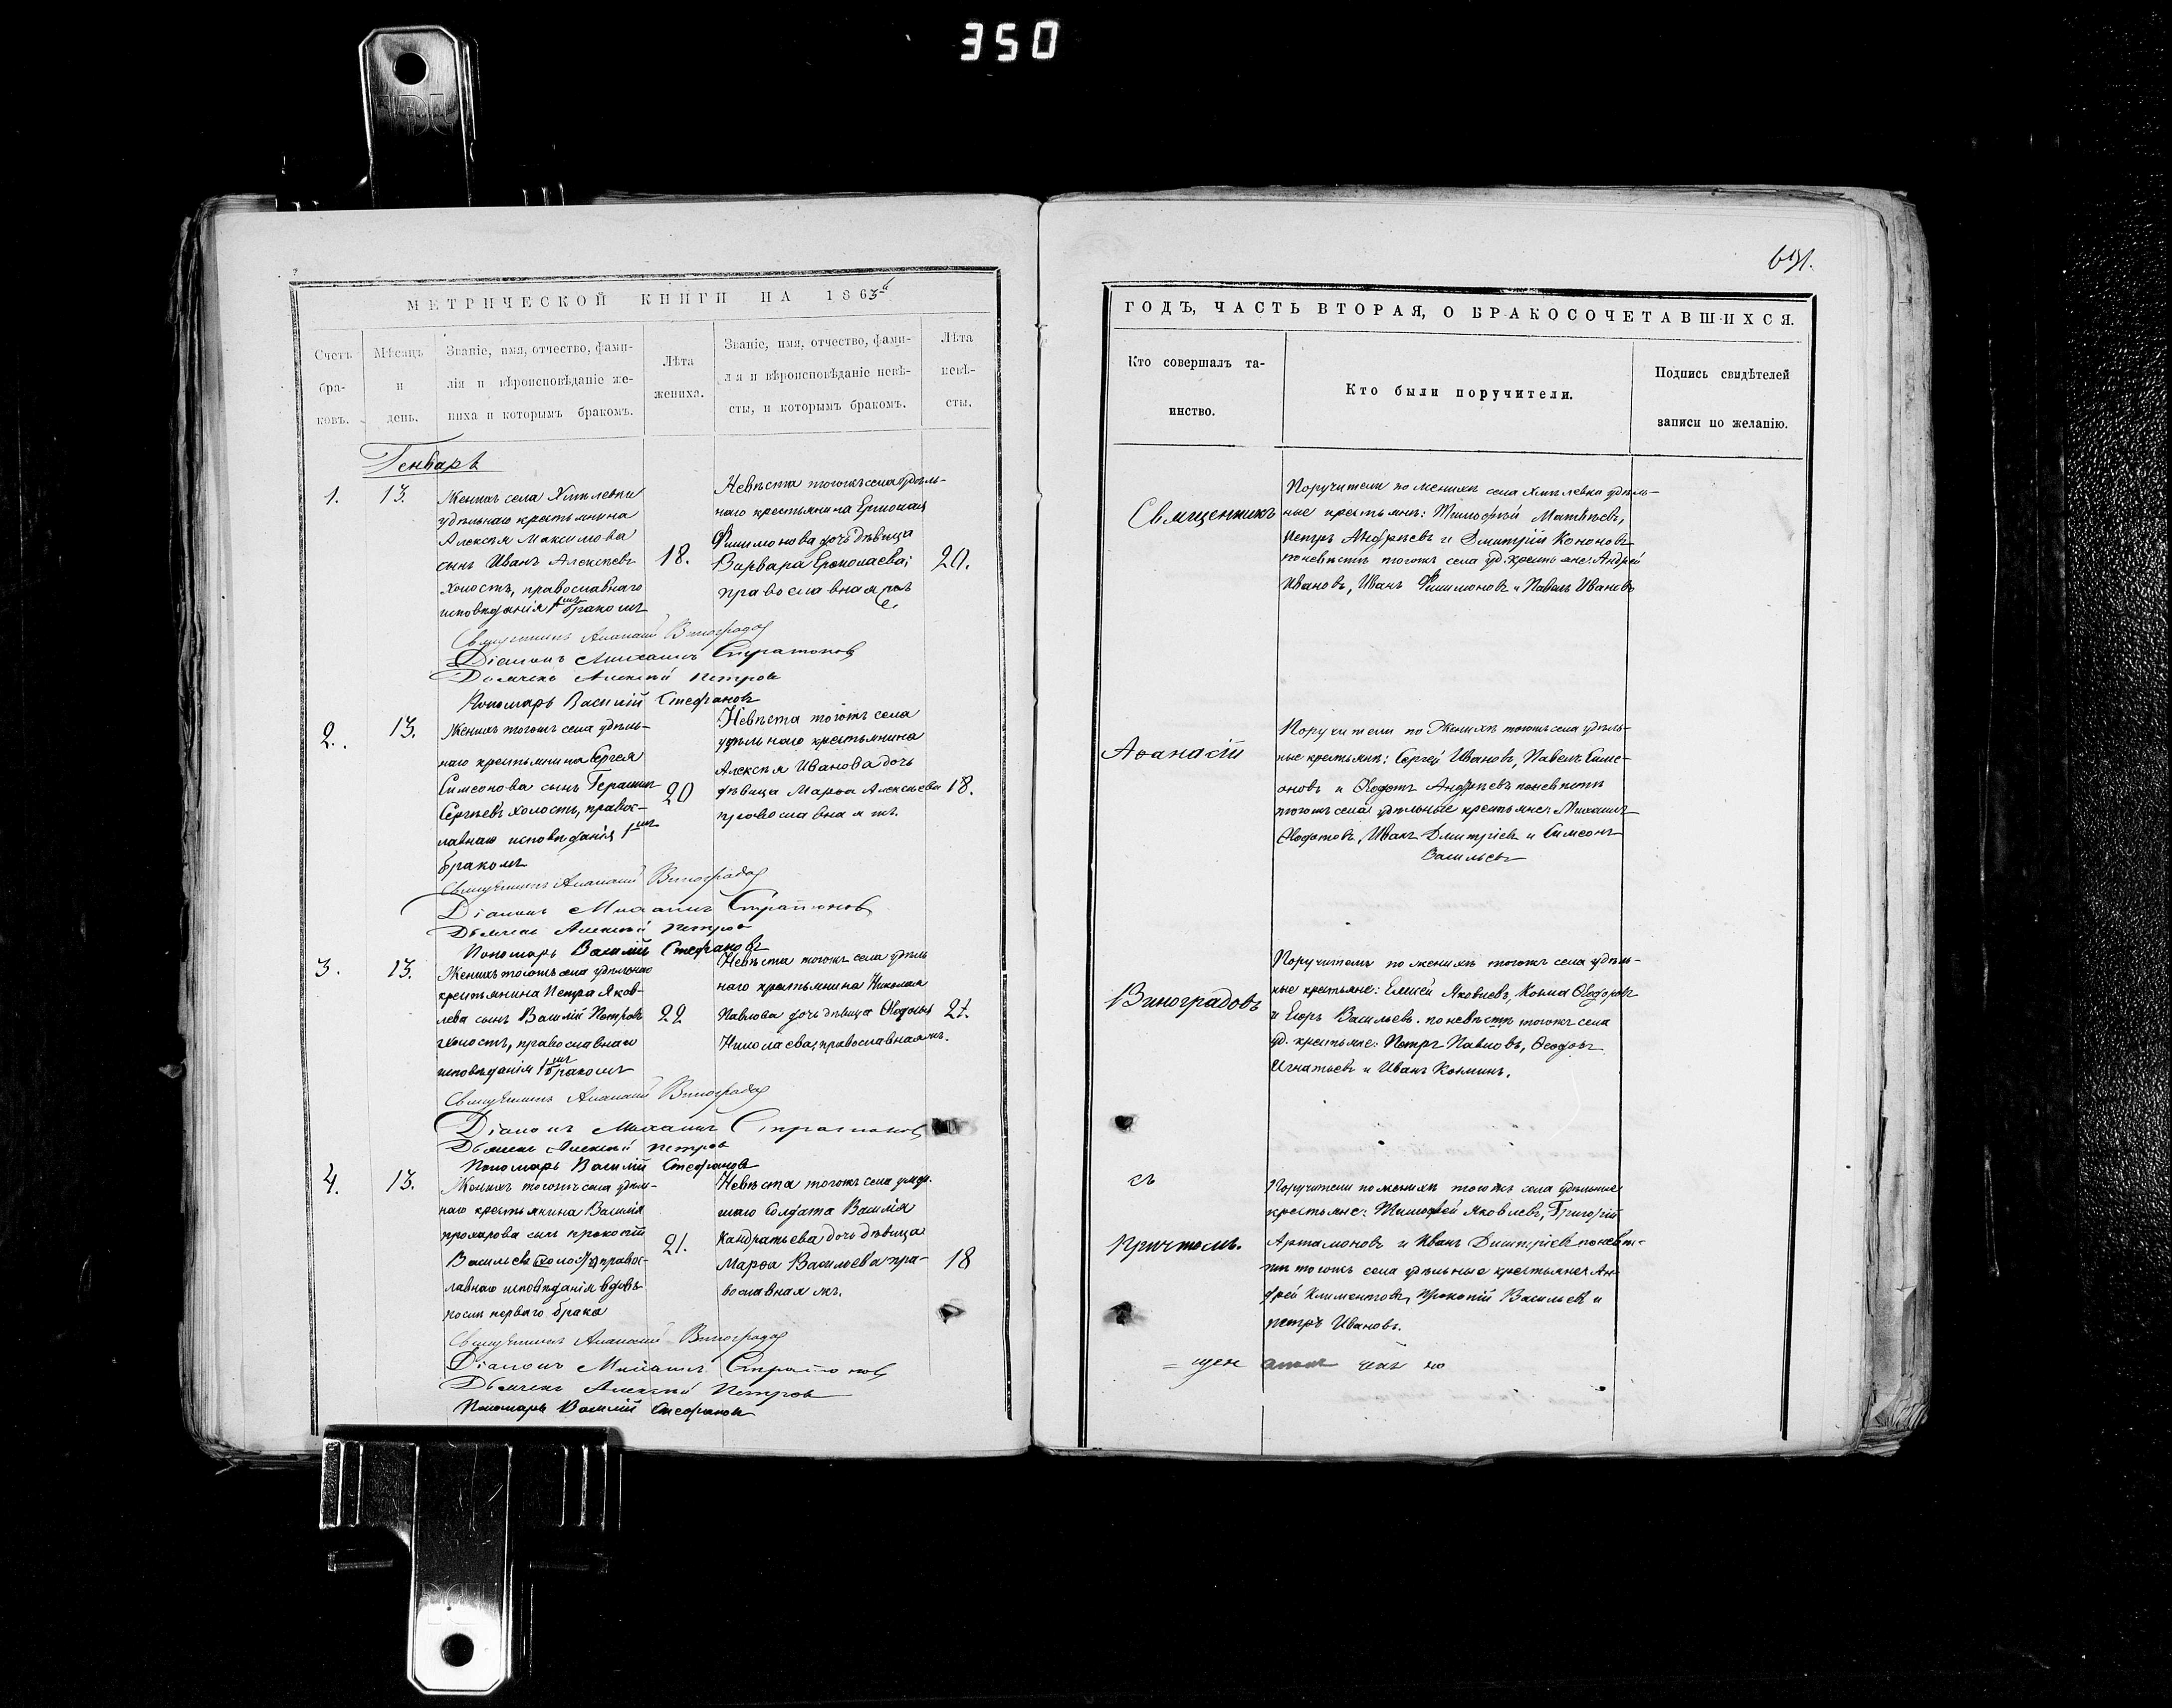 350
631.
МЕТРИЧЕСКОЙ КНИГИ НА 1863й
Счетъ бра-ковъ.
Мѣсяцъ и день.
Званіе, имя, отчество, фами-
лія и вѣроисповѣданіе же-
ниха и которымъ бракомъ.
Лѣта
жениха.
Званіе, имя, отчество, фами-
лія и вѣроисповѣданіе невѣ-
сты, и которымъ бракомъ.
Лѣта
невѣ-
сты.
Генварь
1. 13.
Женихъ села
удѣльнаго крестьянина
Алексѣя Максимова
сынъ Иванъ Алексѣевъ
холостъ, православнаго
исповѣданія 1мъ бракомъ
18.
Невѣста тогожъ села удѣль-
наго крестьянина Ермолая
Филимонова дочь дѣвица
Варвара Ермолаева;
православная
20.
Священникъ Аѳанасій Виноградовъ
Діаконъ Михаилъ Стратоновъ
Дьячекъ Алексѣй Петровъ
Пономарь Василій Стефановъ
2. 13.
Женихъ тогожъ села удѣль-
наго крестьянина Сергея
Симеонова сынъ Герасимъ
Сергѣевъ холостъ, правос-
лавнаго исповѣданія 1мъ
бракомъ
20
Невѣста тогожъ села
удѣльнаго крестьянина
Алексѣя Иванова дочь
дѣвица Марѳа Алексѣева
православная тж.
18.
Священникъ Аѳанасій Виноградовъ
Діаконъ Михаилъ Стратоновъ
Дьячекъ Алексѣй Петровъ
Пономарь Василій Стефановъ
3. 13.
Женихъ тогожъ села удѣльнаго
крестьянина Петра Яков-
лева сынъ Василій Петровъ
холостъ, православнаго
исповѣданія 1мъ бракомъ
22
Невѣста тогожъ села удѣль
наго крестьянина Николая
Павлова дочь дѣвица
Николаева, православная тж.
21.
Священникъ Аѳанасій Виноградовъ
Діаконъ Михаилъ Стратоновъ
Дьячекъ Алексѣй Петровъ
Пономарь Василій Стефановъ
4. 13.
Женихъ тогожъ села удѣль-
наго крестьянина Василія
Прохорова сынъ Прокопій
Васильевъ православ-
лавнаго исповѣданія вдовъ
послѣ перваго брака
21.
Невѣста тогожъ села
шаго Солдата Василія
Кандратьева дочь дѣвица
Марѳа Васильева пра-
вославная тж.
18
Священникъ Аѳанасій Виноградовъ
Діаконъ Михаилъ Стратоновъ
Дьячекъ Алексѣй Петровъ
Пономарь Василій Стефановъ
ГОДЪ, ЧАСТЬ ВТОРАЯ, О БРАКОСОЧЕТАВШИХСЯ.
Кто совершалъ та-
инство.
Кто были поручители.
Подпись свидѣтелей
записи по желанію.
Священникъ
Поручители по женихѣ села удѣль-
ные крестьяне: Тимофей Матвѣевъ,
Петръ Андреевъ и Дмитрій Кононовъ
по невѣстѣ тогожъ села уд. крестьяне: Андрей
Ивановъ, Иванъ Филимоновъ и Павелъ Ивановъ
Аѳанасій
Поручители по Женихѣ тогожъ села удѣль-
ные крестьяне: Сергей Ивановъ, Павелъ Симе-
оновъ и Ѳедотъ Андреевъ по невѣстѣ
тогожъ села удѣльные крестьяне: Михаилъ
Ѳедотовъ, Иванъ Дмитріевъ и Симеонъ
Васильевъ
Виноградовъ
Поручители по женихѣ тогожъ села удѣль-
ные крестьяне: Елисей Яковлевъ, Козма Ѳедоровъ
и Егоръ Васильевъ. по невѣстѣ тогожъ села
уд. крестьяне: Петръ Павловъ, Ѳеодоръ
Игнатьевъ и Иванъ Козминъ.
съ
Причтомъ.
Поручители по женихѣ тогожъ села удѣльные
крестьяне: Тимофей Яковлевъ, Григорій
Артамоновъ и Иванъ Дмитріевъ по невѣс-
тѣ тогожъ села удѣльные крестьяне: Ан-
дрей Климентовъ, Прокопій Васильевъ и
Петръ Ивановъ.
= щен